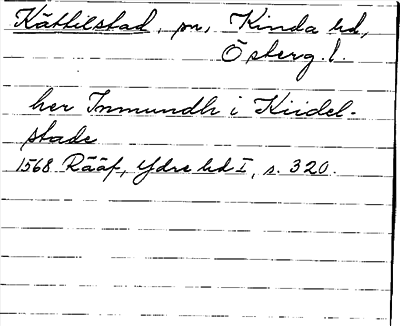 Kättilstad, sn, Kinda hd,
Österg. l.
her Inmundh i Kiidel-
stade
1568 Rääf, Ydre hd I, s. 320.